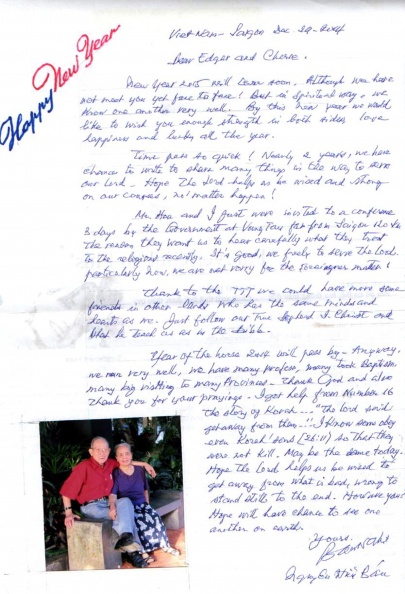 Happy New Year
Viet Nam - Saigon Dec - 29 - 2014
Dear Edgar and
New Year 2015 will soon. Although we have
not meet you yet face to face! But in spiritual way, we
know one another very well. By this new year we would
like to wish you enough strength in both sides, love
happiness and lucks all the year.
Time pass so quick! Nearly 2 years, we have
chance to write to share many things in the way to serve
our Lord - Hope the Lord helps us be wised and strong
on our matter happen!
Mr. Hoa and I just were invited to a conference
3 days by the Government at Vung Tau far from Saigon
The reason they want us to hear carefully what they treat
to the religions recently. It's good, we freely to serve the Lord.
particularly now, we are not worry for the foreigner matter!
Thank to the we could have more some
friends in other who has the same minds and
hearts as me. Just follow our True Christ and
what he teach us as in the Bible.
Year of the horse will pass by - Anyway,
we run very well, we have many many took Baptism
many visiting to many Provinces - Thank God and also
Thank you for your prayings. I got help from Number 16
the story of Korah ... "the Lord said
get away from them..." I know some obey
even Korah' sons (26:11) so that they
were not kill. May be the same today.
Hope the Lord helps us be wised to
get away from what is bad, wrong to
stand still to the end. How are you?
Hope will have chance to see one
another on earth.
Yours.
Nguyen Hien Ban